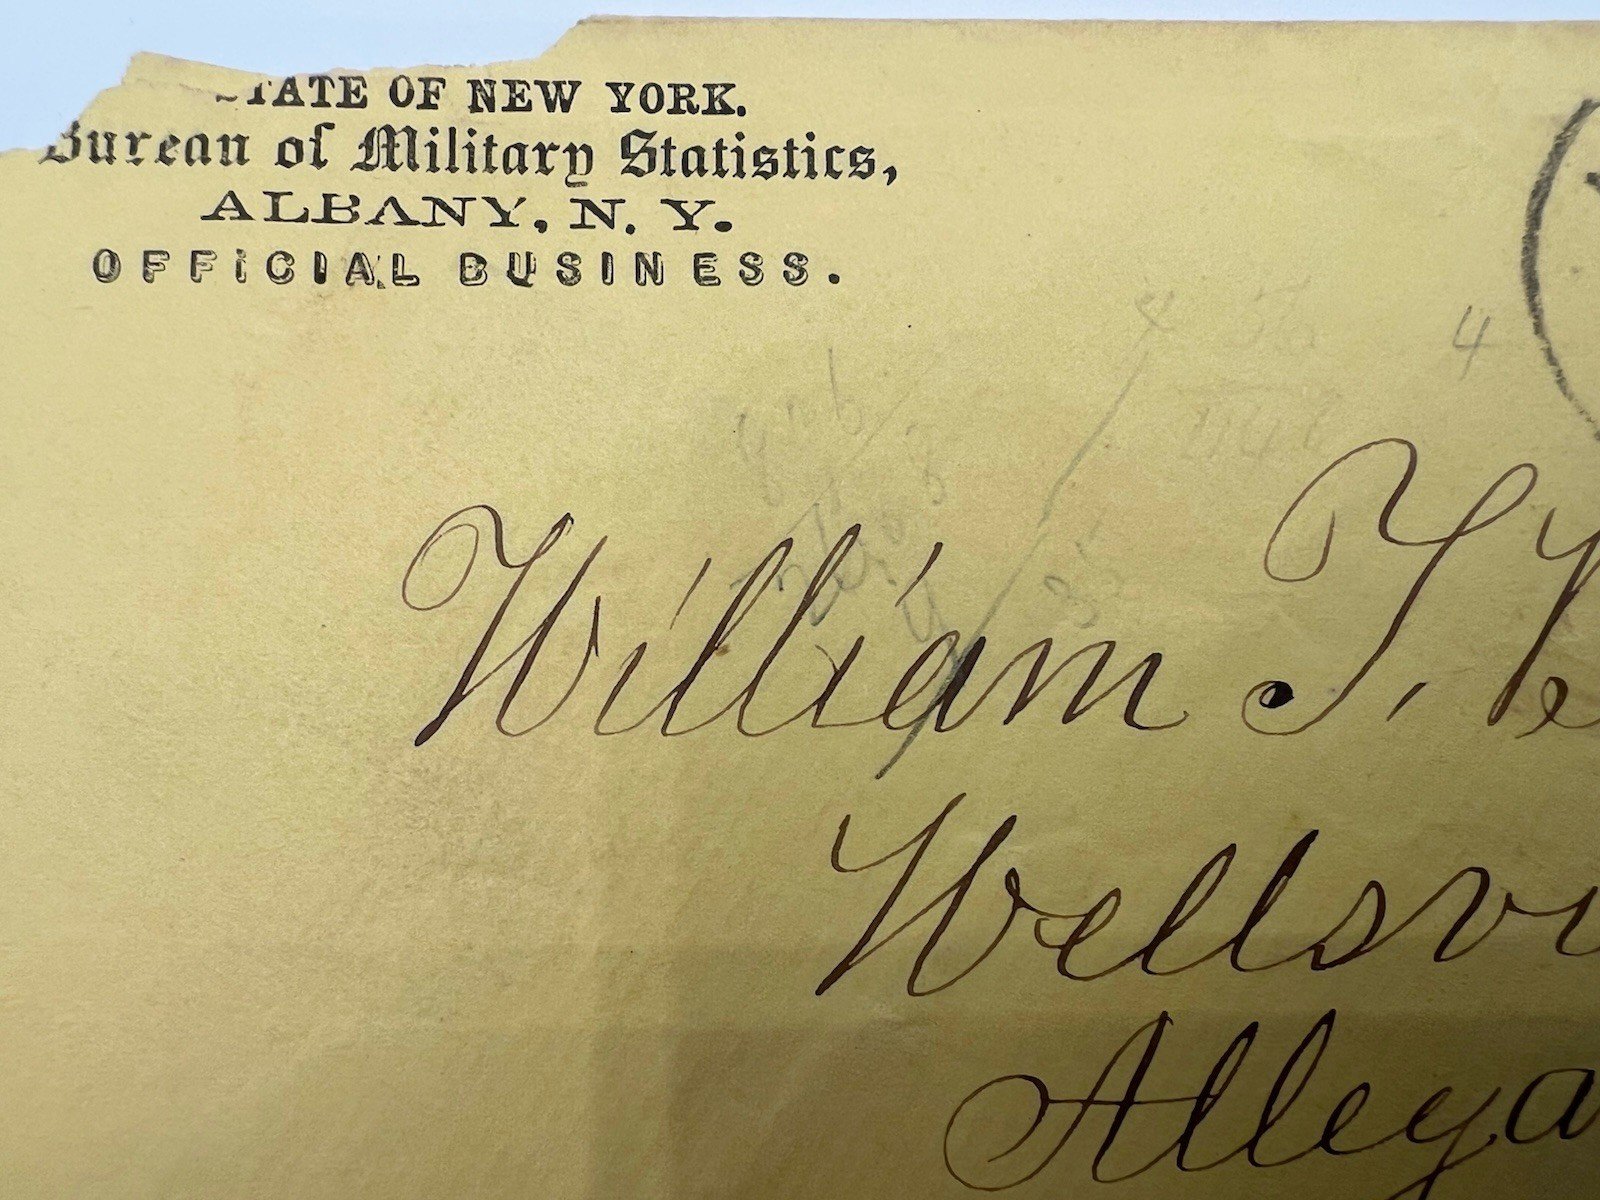 STATE OF NEW YORK.
Bureau of Military Statistics,
ALBANY, N. Y.
OFFICIAL BUSINESS.
4
William T.
Wellsvi
Allega